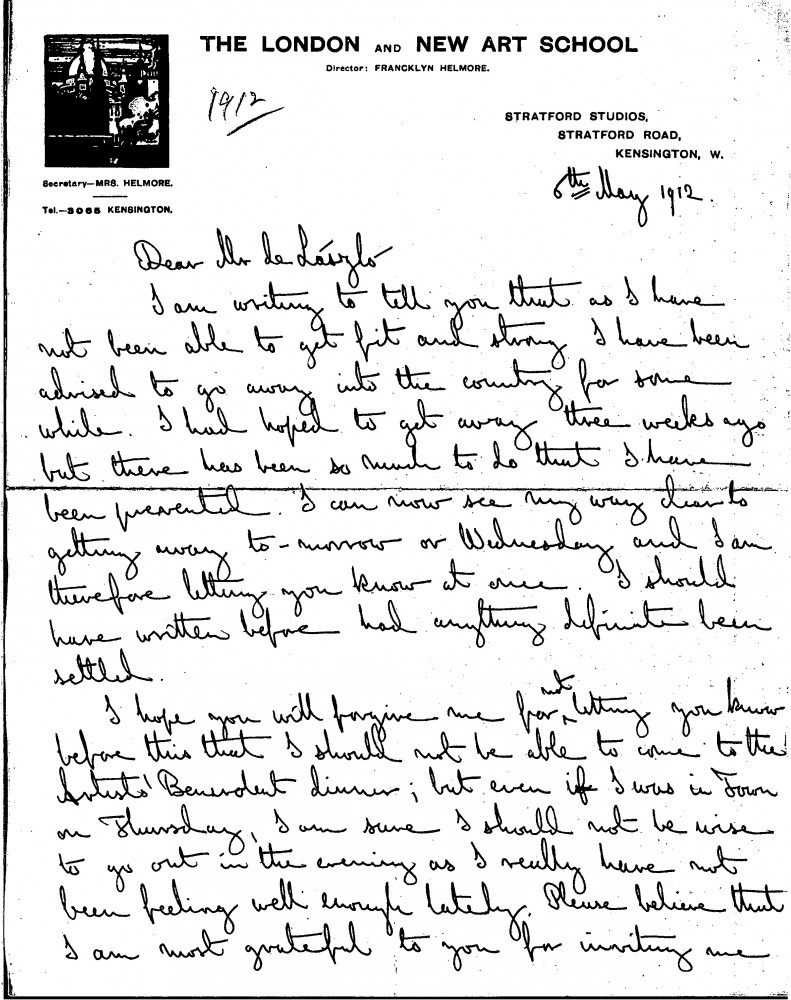 THE LONDON AND NEW ART SCHOOL
Director: FRANCKLYN HELMORE.
1912
STRATFORD STUDIOS,
STRATFORD ROAD,
KENSINGTON, W.
Secretary—MRS. HELMORE.
Tel.—3065 KENSINGTON.
6th May 1912.
Dear Mr de László
I am writing to tell you that as I have
not been able to get fit and strong I have been
advised to go away into the country for some
while. I had hoped to get away three weeks ago
but there has been so much to do that I have
been prevented. I can now see my way clear to
getting away to-morrow or Wednesday and I am
therefore letting you know at once. I should
have written before had anything definite been
settled.
I hope you will forgive me for not letting you know
before this that I should not be able to come to the
Artists' Benevolent dinner; but even if I was in Town
on Thursday, I am sure I should not be wise
to go out in the evening as I really have not
been feeling well enough lately. Please believe that
I am most grateful to you for inviting me